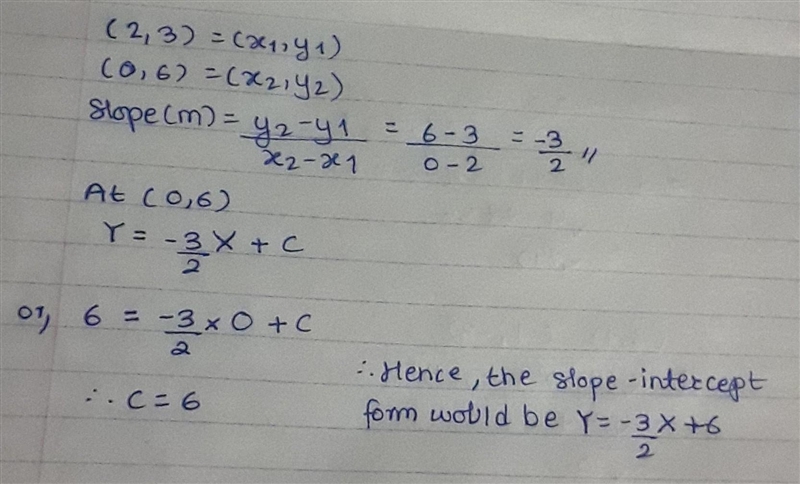 (2,3) = (x1,y1)
(0,6) = (x2,y2)
Slope(m) = y2-y1/x2-x1 = 6-3/0-2 = -3/2 //
At (0,6)
Y = -3/2 X + C
or, 6 = -3/2 × 0 + C
∴ C = 6
∴ Hence, the slope-intercept
form would be Y = -3/2 X + 6